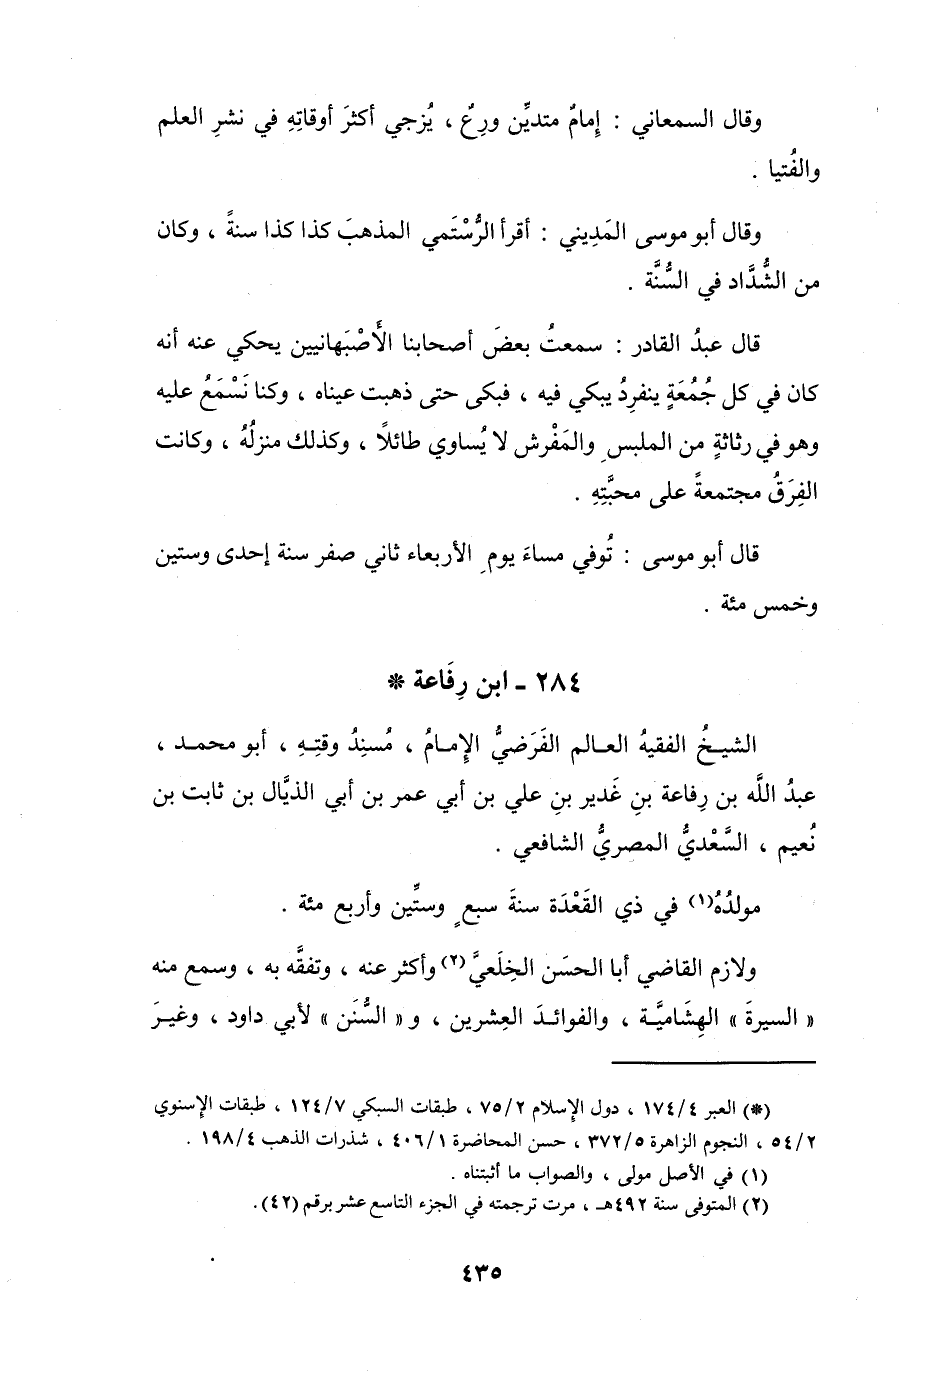 وقال السمعاني : إِمامٌ متديِّن ورِعٌ ، يُزجي أكثرَ أوقاتِهِ في نشرِ العلم
والفُتيا .
وقال أبو موسى المَدِيني : أقرأ الرُّسْتَمي المذهبَ كذا كذا سنةً ، وكان
من الشُّدَّاد في السُّنَّة .
قال عبدُ القادر : سمعتُ بعضَ أصحابنا الأَصْبَهانيين يحكي عنه أنه
كان في كل جُمُعَةٍ ينفرِدُ يبكي فيه ، فبكى حتى ذهبت عيناه ، وكنا نَسْمَعُ عليه
وهو في رثاثةٍ من الملبسِ والمَفْرش لا يُساوي طائلاً ، وكذلك منزلُهُ ، وكانت
الفِرَقُ مجتمعةً على محبَّتِهِ .
قال أبو موسى : تُوفي مساءَ يومِ الأربعاء ثاني صفر سنة إحدى وستين
وخمس مئة .
٢٨٤ - ابن رِفَاعة *
الشيخُ الفقيهُ العالم الفَرَضيُّ الإِمامُ ، مُسنِدُ وقتِهِ ، أبو محمد ،
عبدُ اللَّه بن رِفاعة بنِ غَدير بنِ علي بن أبي عمر بن أبي الذيَّال بن ثابت بن
نُعيم ، السَّعْديُّ المصريُّ الشافعي .
مولدُهُ(١) في ذي القَعْدَة سنةَ سبعٍ وستِّين وأربع مئة .
ولازم القاضي أبا الحسَن الخِلَعيَّ(٢) وأكثر عنه ، وتفقَّه به ، وسمع منه
« السيرةَ » الهِشَاميَّة ، والفوائدَ العِشرين ، و« السُّنَن » لأبي داود ، وغيرَ
(*) العبر ١٧٤/٤ ، دول الإِسلام ٧٥/٢ ، طبقات السبكي ١٢٤/٧ ، طبقات الإِسنوي
٥٤/٢ ، النجوم الزاهرة ٣٧٢/٥ ، حسن المحاضرة ٤٠٦/١ ، شذرات الذهب ١٩٨/٤ .
(١) في الأصل مولى ، والصواب ما أثبتناه .
(٢) المتوفى سنة ٤٩٢هـ ، مرت ترجمته في الجزء التاسع عشر برقم (٤٢) .
٤٣٥